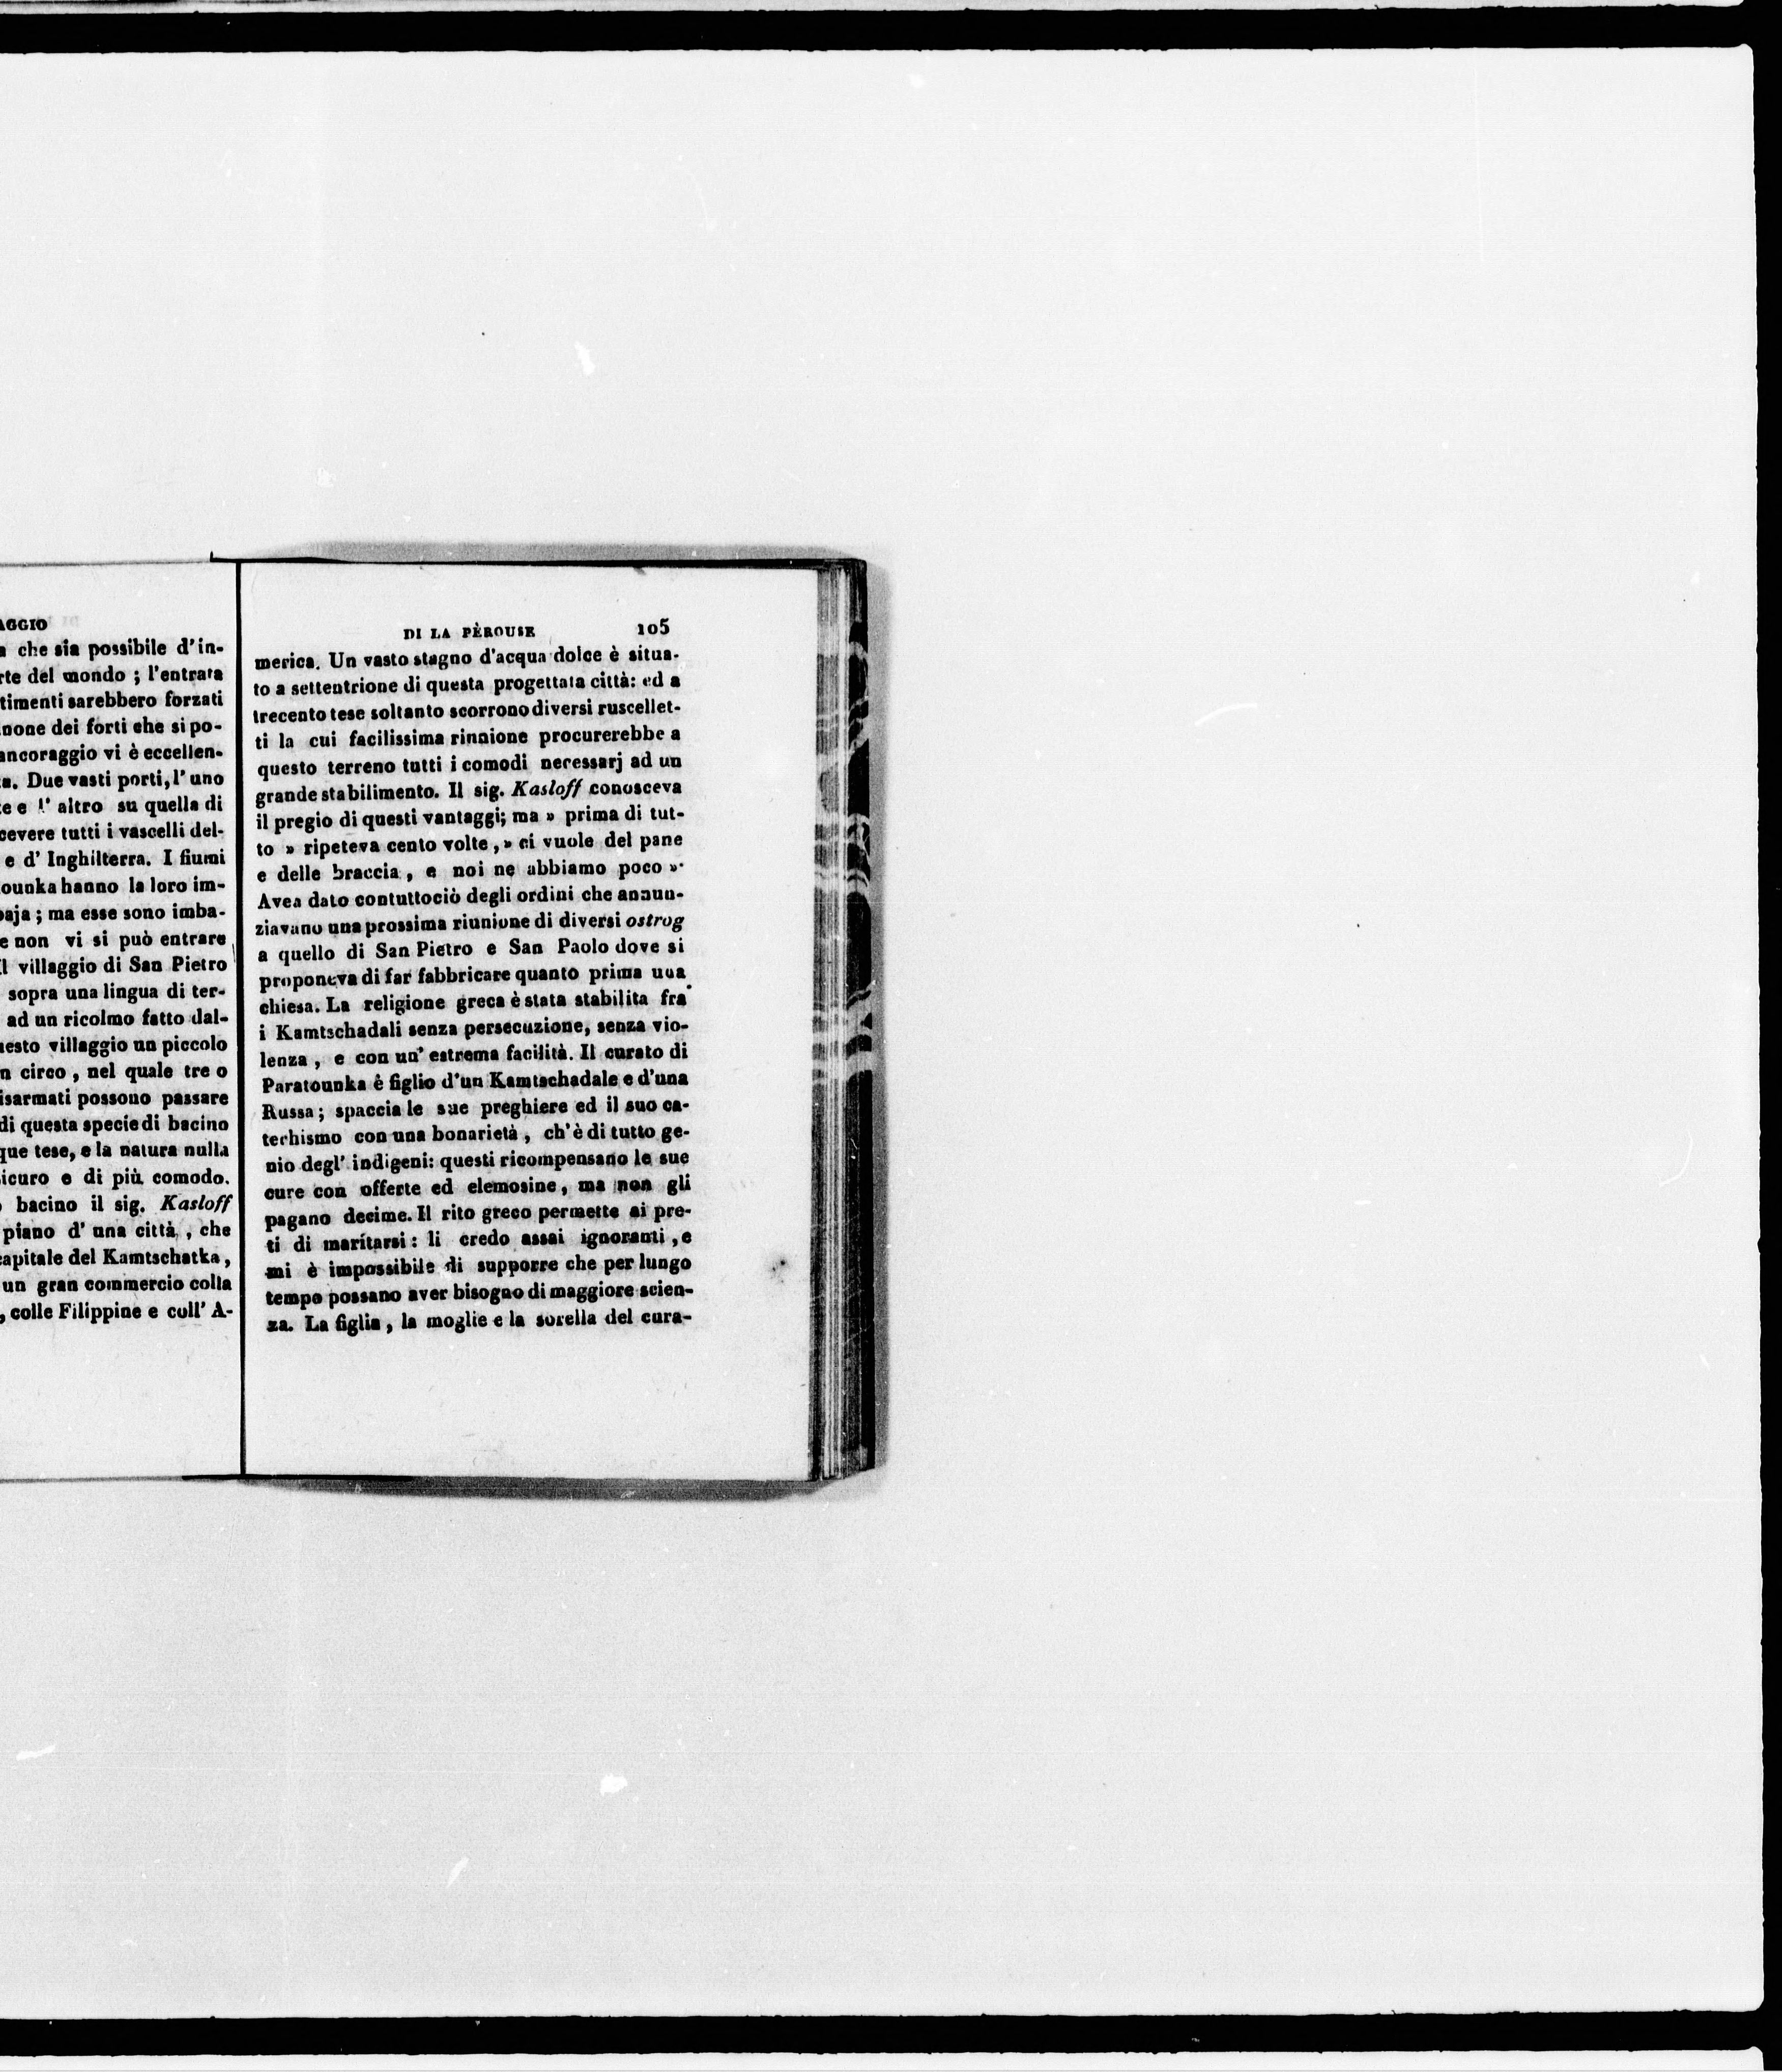 AGGIO
che sia possibile d'in-
rte del mondo ; l'entrata
timenti sarebbero forzati
none dei forti che si po-
ancoraggio vi è eccellen-
a. Due vasti porti, l' uno
e e l' altro su quella di
cevere tutti i vascelli del-
e d' Inghilterra. I fiumi
ounka hanno la loro im-
baja ; ma esse sono imba-
e non vi si può entrare
Il villaggio di San Pietro
sopra una lingua di ter-
ad un ricolmo fatto dal-
uesto villaggio un piccolo
n circo , nel quale tre o
isarmati possono passare
di questa specie di bacino
que tese, e la natura nulla
icuro e di più comodo.
bacino il sig. Kasloff
piano d' una città , che
capitale del Kamtschatka ,
un gran commercio colla
, colle Filippine e coll' A-
DI LA PÈROUSE 105
merica. Un vasto stagno d'acqua dolce è situa-
to a settentrione di questa progettata città: ed a
trecento tese soltanto scorrono diversi ruscellet-
ti la cui facilissima rinnione procurerebbe a
questo terreno tutti i comodi necessarj ad un
grande stabilimento. Il sig. Kasloff conosceva
il pregio di questi vantaggi; ma » prima di tut-
to » ripeteva cento volte , » ci vuole del pane
e delle braccia , e noi ne abbiamo poco ».
Avea dato contuttociò degli ordini che annun-
ziavano una prossima riunione di diversi ostrog
a quello di San Pietro e San Paolo dove si
proponeva di far fabbricare quanto prima una
chiesa. La religione greca è stata stabilita fra
i Kamtschadali senza persecuzione, senza vio-
lenza , e con un' estrema facilità. Il curato di
Paratounka è figlio d'un Kamtschadale e d'una
Russa ; spaccia le sue preghiere ed il suo ca-
techismo con una bonarietà , ch'è di tutto ge-
nio degl' indigeni: questi ricompensano le sue
cure con offerte ed elemosine, ma non gli
pagano decime. Il rito greco permette ai pre-
ti di maritarsi : li credo assai ignoranti , e
mi è impossibile di supporre che per lungo
tempo possano aver bisogno di maggiore scien-
za. La figlia , la moglie e la sorella del cura-